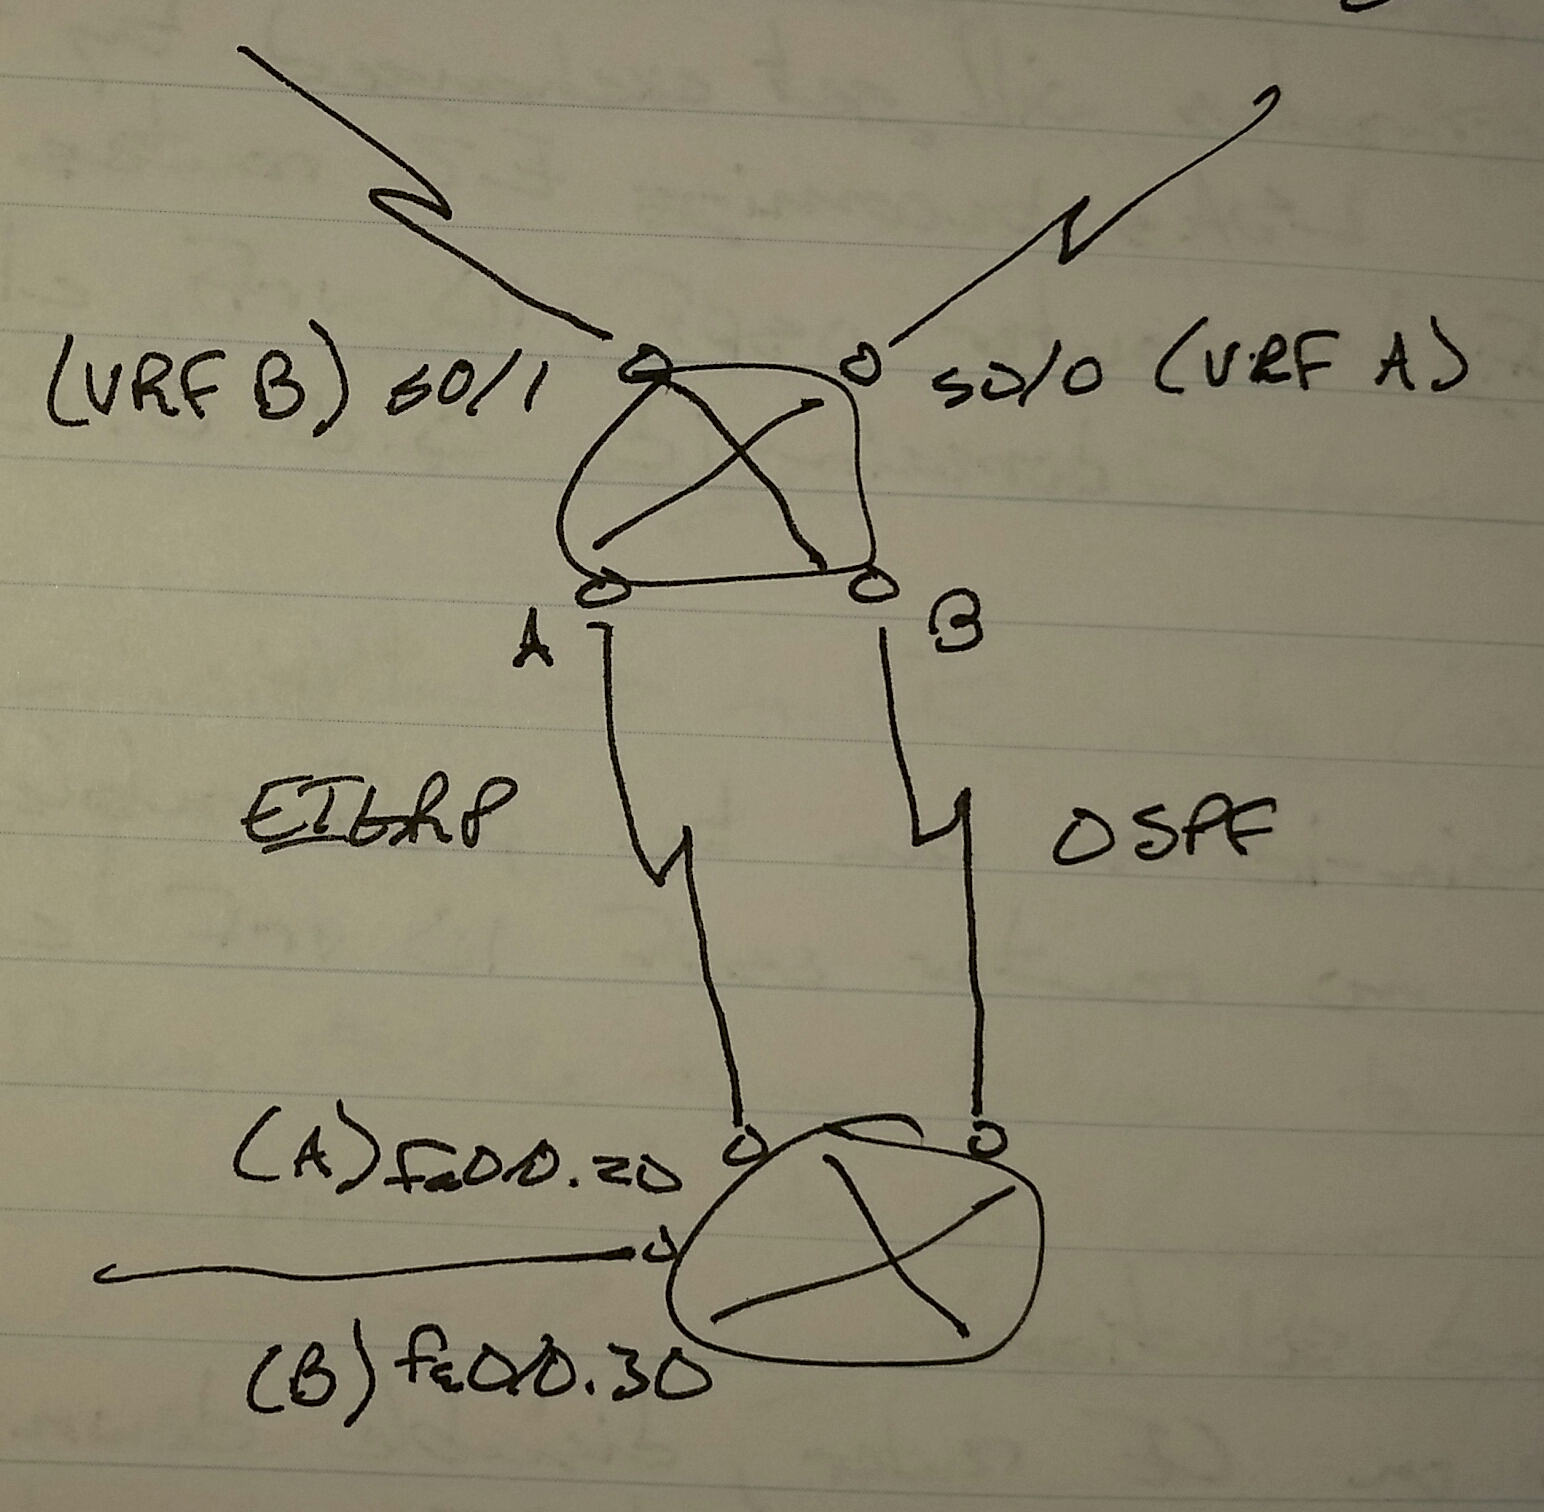 (VRF B) S0/1
S0/0 (VRF A)
A
B
EIGRP
OSPF
(A) fa0/0.20
(B) fa0/0.30